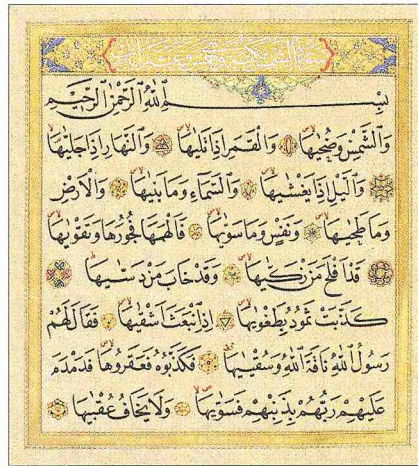 بسم الله الرحمن الرحيم
والشمس وضحيها والقمر اذا تليها والنهار اذا جليها
واليل اذا يغشيها والسماء وما بنيها والارض
وما طحيها ونفس وما سويها فالهمها فجورها وتقويها
قد افلح من زكيها وقد خاب من دسيها
كذبت ثمود بطغويها اذ انبعث اشقيها فقال لهم
رسول الله ناقة الله وسقييها فكذبوه فعقروها فدمدم
عليهم ربهم بذنبهم فسويها ولا يخاف عقبيها